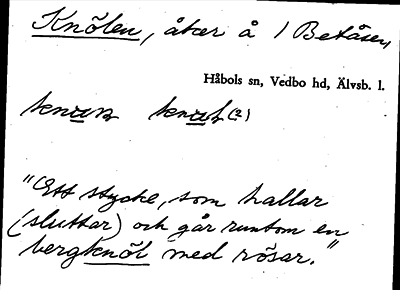 Knölen, åker å 1 Betåsen
Håbols sn, Vedbo hd, Älvsb. l.
"Ett stycke, som hallar
(sluttar) och går runtom en
bergknöl med rösar."